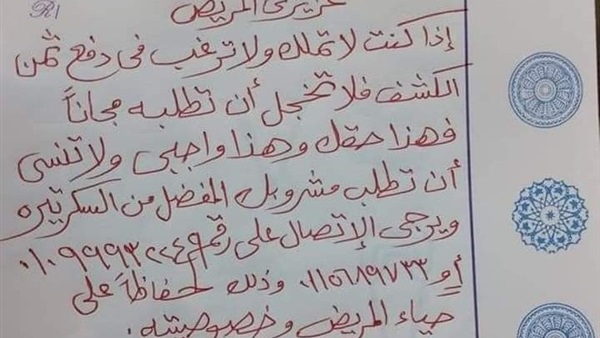 R/
عزيزى المريض
إذا كنت لا تملك ولا ترغب فى دفع ثمن
الكشف فلا تخجل أن تطلبه مجاناً
فهذا حقك وهذا واجبى ولا تنسى
أن تطلب مشروبك المفضل من السكرتيره
ويرجى الإتصال على رقم ٠١٠٩٩٩٣٢٢٤٩
أو ٠١١٥٦٨٩٧٣٣ وذلك حفاظاً على
حياء المريض وخصوصيته.